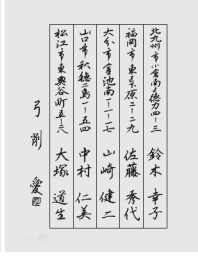 北九州市小倉南区徳力四-三
鈴木 幸子
福岡市東区原二-二九
佐藤 秀代
大分市金池南一-一-七
山崎 健二
山口市秋穂二島一-五四
中村 仁美
松江市東奥谷町五-六
大塚 道生
弓削 愛